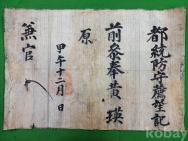 都統防守薦望記
前叅奉黄瑛
原
甲午十二月 日
兼官
kobay